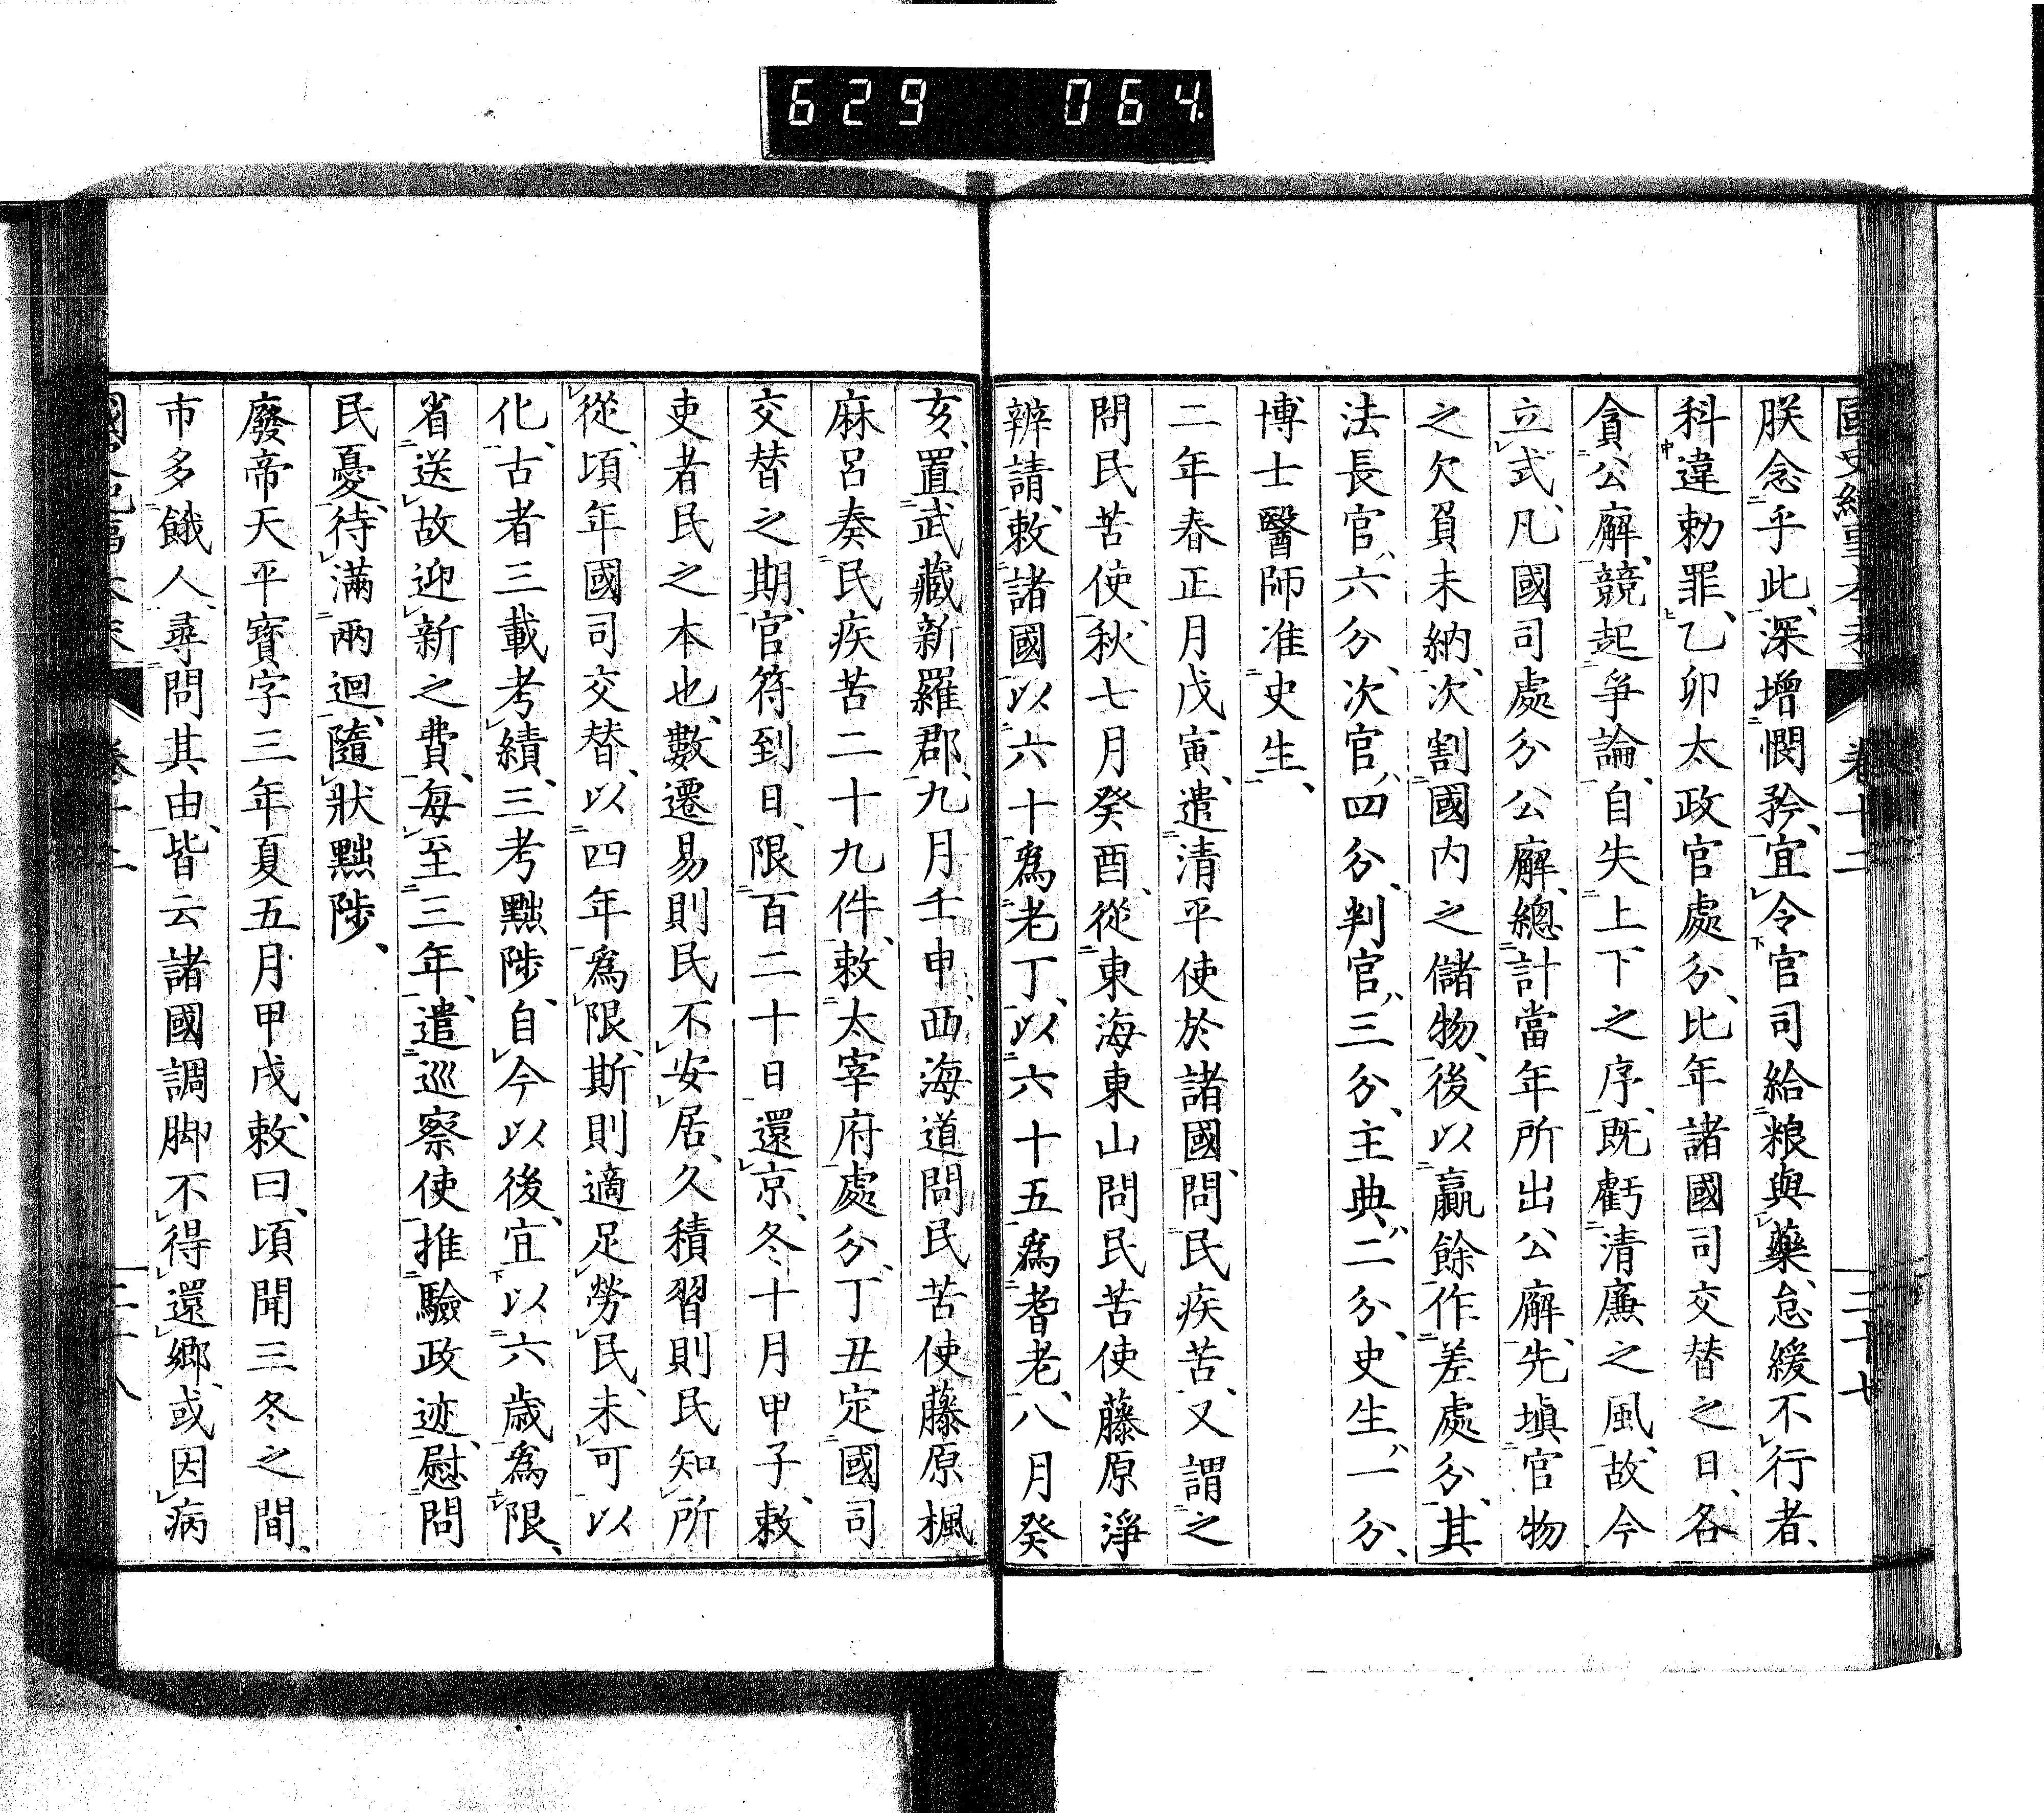 629 064
卷十二 二十七
朕念乎此、深増憫矜、宜令官司給粮與藥、怠緩不行者、
科違勅罪、乙卯太政官處分、比年諸國司交替之日、各
貪公廨、競起爭論、自失上下之序、既虧清廉之風、故今
立式、凡國司處分公廨、總計當年所出公廨、先塡官物
之欠負未納、次割國内之儲物、後以贏餘作差處分、其
法長官六分、次官四分、判官三分、主典二分、史生一分、
博士醫師准史生、
二年春正月戊寅、遣清平使於諸國、問民疾苦、又謂之
問民苦使、秋七月癸酉、從東海東山問民苦使藤原淨
辨請、敕諸國以六十爲老丁、以六十五爲耆老、八月癸
亥、置武藏新羅郡、九月壬申、西海道問民苦使藤原楓
麻呂奏民疾苦二十九件、敕太宰府處分、丁丑定國司
交替之期、官符到日、限百二十日還京、冬十月甲子、敕
吏者民之本也、數遷易則民不安居、久積習則民知所
從、頃年國司交替、以四年爲限、斯則適足勞民、未可以
化、古者三載考績、三考黜陟、自今以後、宜以六歲爲限、
省送故迎新之費、每至三年、遣巡察使推驗政迹、慰問
民憂、待滿兩迴、隨狀黜陟、
廢帝天平寶字三年夏五月甲戌、敕曰、頃聞三冬之間、
市多餓人、尋問其由、皆云諸國調脚不得還鄉、或因病